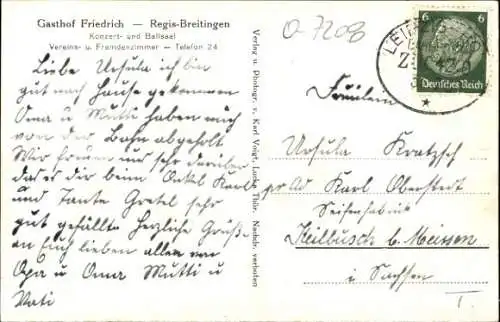 Gasthof Friedrich — Regis-Breitingen
Konzert- und Ballsaal
Vereins- u. Fremdenzimmer — Telefon 24
Liebe Ursula ich bin
gut nach Hause gekommen
Oma u Mutti haben mich
von der Bahn abgeholt
Wir freuen uns sehr darüber
das es dir beim Onkel Karl
und Tante Gretel sehr
gut gefällt. Herzliche Grüße
an Euch lieben allen von
Opa u Oma Mutti u
Vati
Verlag u. Photogr. v. Karl Voigt, Lucka Thür. Nachdr. verboten
O-7208
6 6
Deutsches Reich
Fräulein
Ursula Kratzsch
pr Ad Karl Oberstedt
Seifenfabrik
Keilbusch b. Meissen
i Sachsen
I.